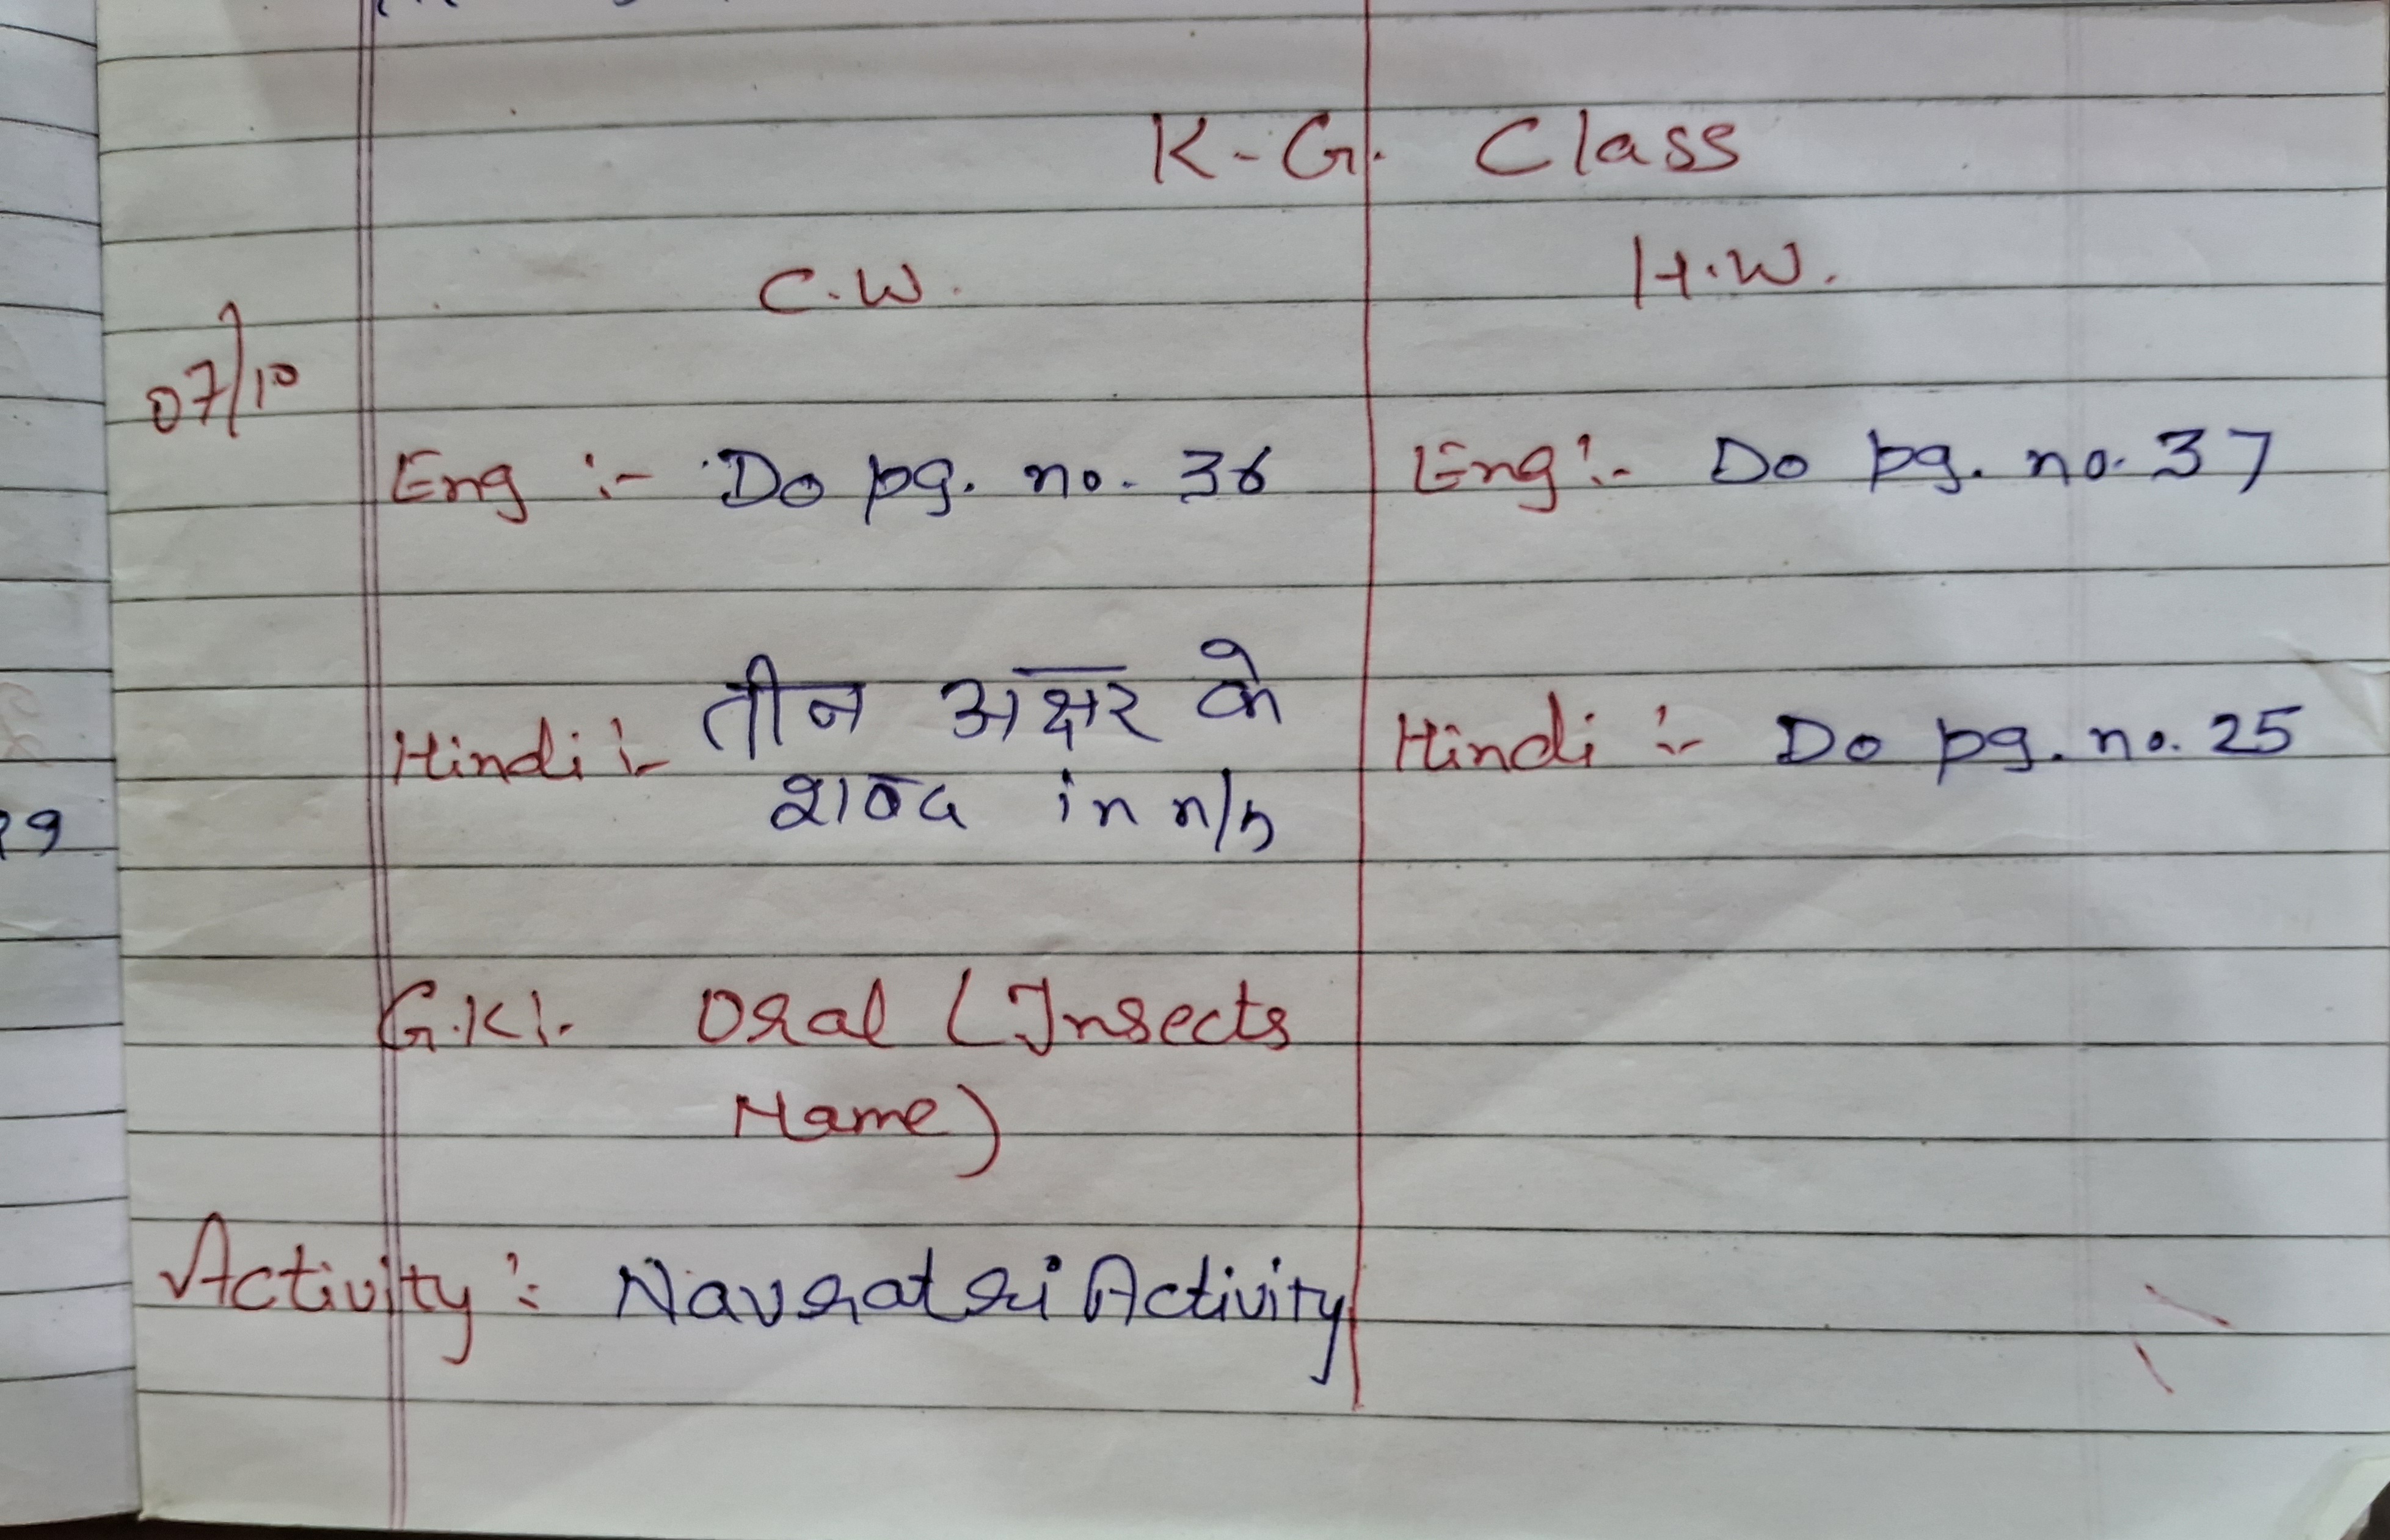 K-G. Class
C.W. H.W.
07/10
Eng :- Do pg. no. 36 Eng :- Do pg. no. 37
Hindi :- तीन अक्षर के Hindi :- Do pg. no. 25
शब्द in n/b
G.K :- Oral (Insects
Name)
Activity :- Navratri Activity